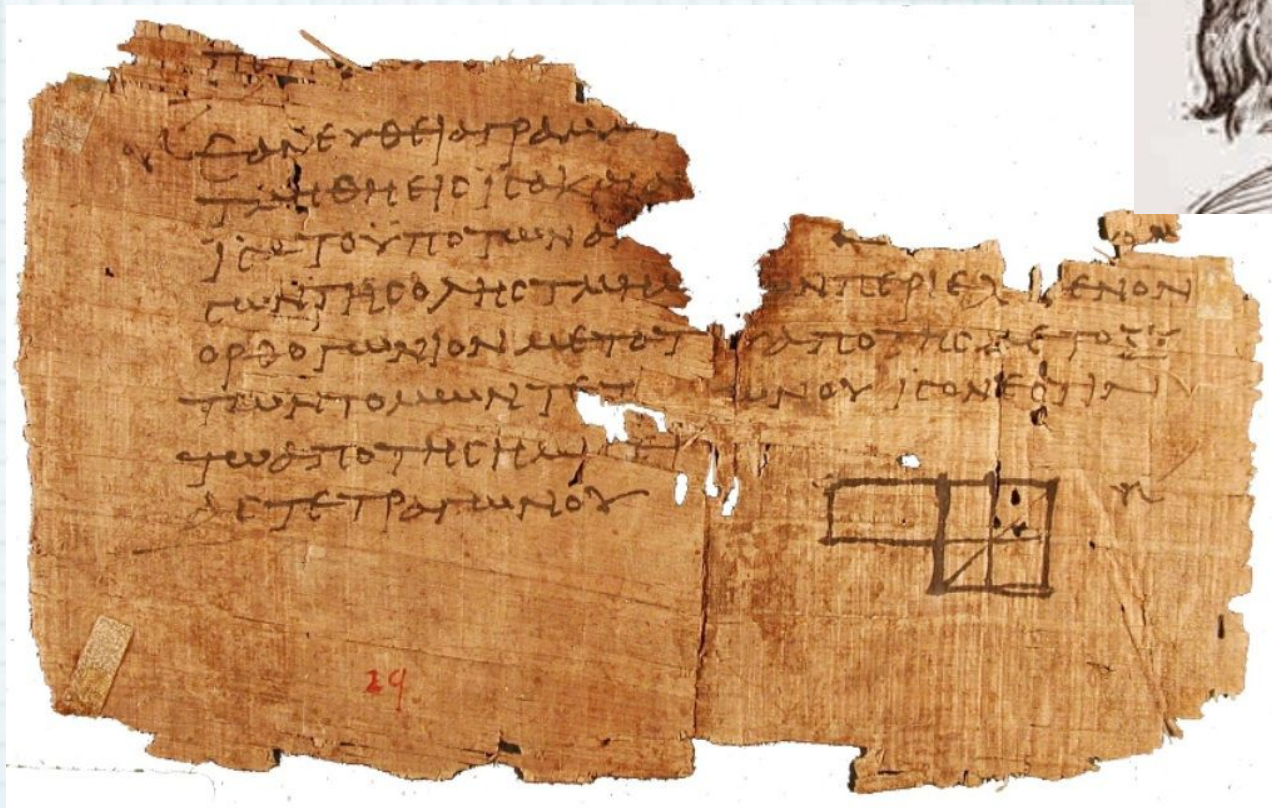 ΕΑΝΕΥΘΕΙΑΓΡΑΜΜ
ΤΜΗΘΗΕΙCΙCΑΚΑΙΑ
ΙCΑΤΟΫΠΟΤΩΝΑ
CΩΝΤΗCΟΛΗCΤΜΗΜ ΩΝΠΕΡΙΕΧ ΕΝΟΝ
ΟΡΘΟΓΩΝΙΟΝΜΕΤΟΤ ΑΠΟΤΗCΜΕΤΟΞΥ
ΤΩΝΤΟΜΩΝΤΕΤ ΩΝΟΥΙCΟΝΕCΤΙΝ
ΤΩΑΠΟΤΗCΗΜΙ
ΑCΤΕΤΡΑΓΩΝΟΥ
29